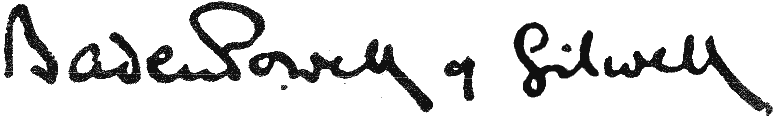 Baden Powell of Gilwell